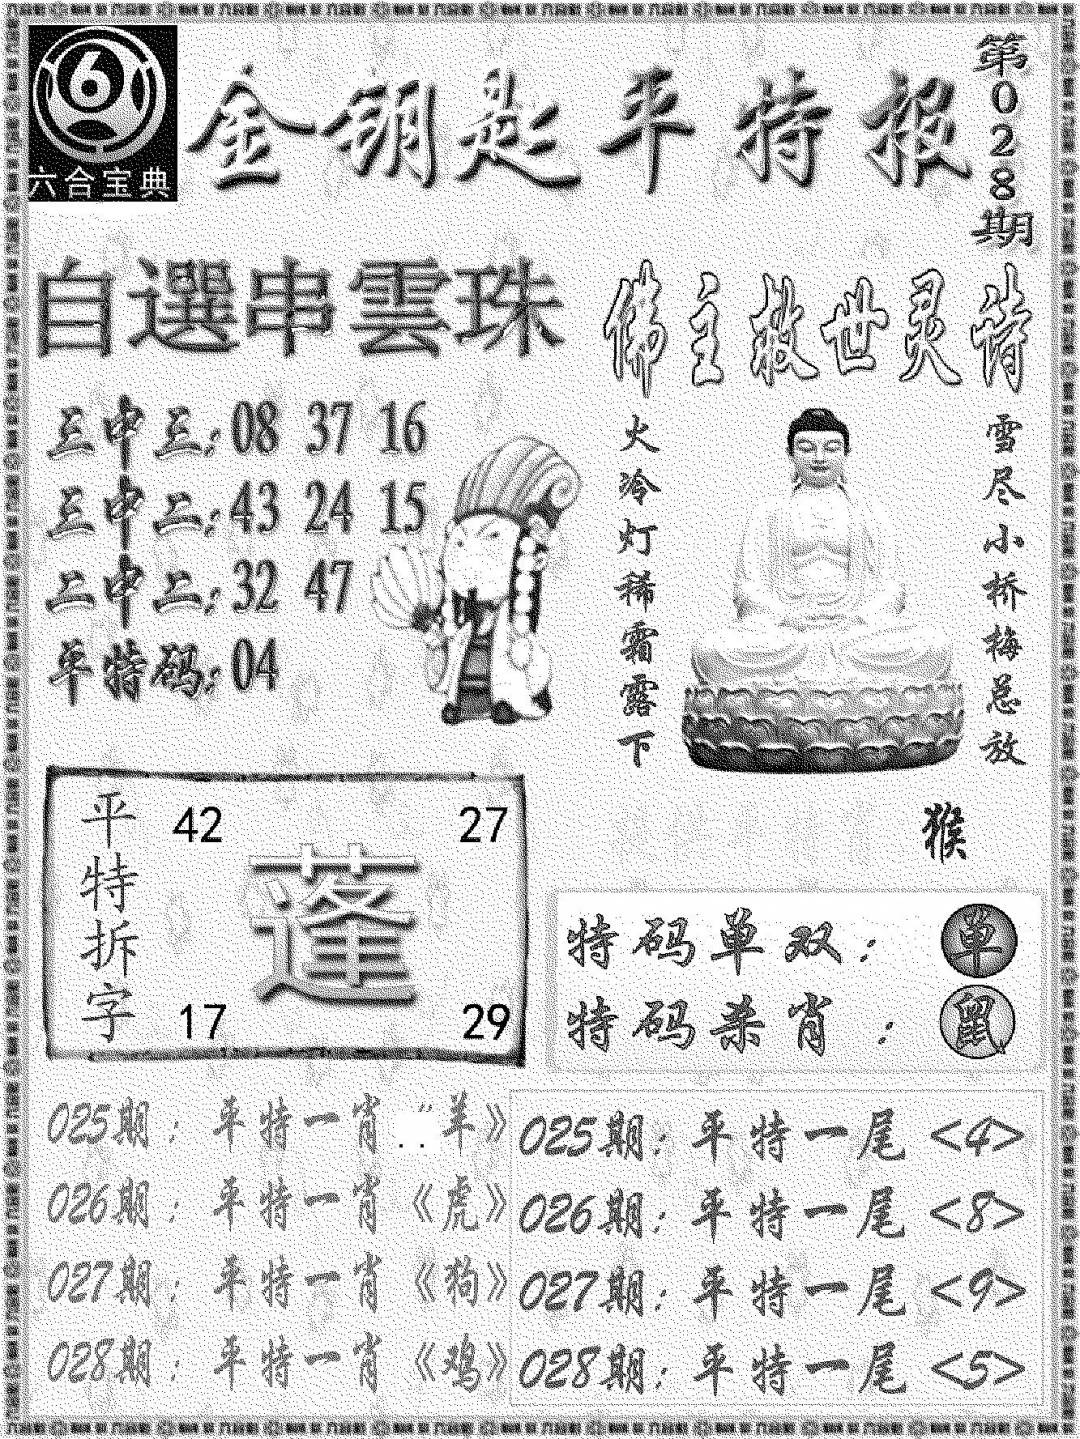 6
六合宝典
金钥匙平特报
第028期
自選串雲珠
三中三: 08 37 16
三中二: 43 24 15
二中二: 32 47
平特码: 04
佛主救世灵诗
雪尽小桥梅总放
火冷灯稀霜露下
猴
平特拆字
42 27
蓬
17 29
特码单双: 单
特码杀肖: 鼠
025期: 平特一肖 羊》
026期: 平特一肖《虎》
027期: 平特一肖《狗》
028期: 平特一肖《鸡》
025期: 平特一尾 <4>
026期: 平特一尾 <8>
027期: 平特一尾 <9>
028期: 平特一尾 <5>